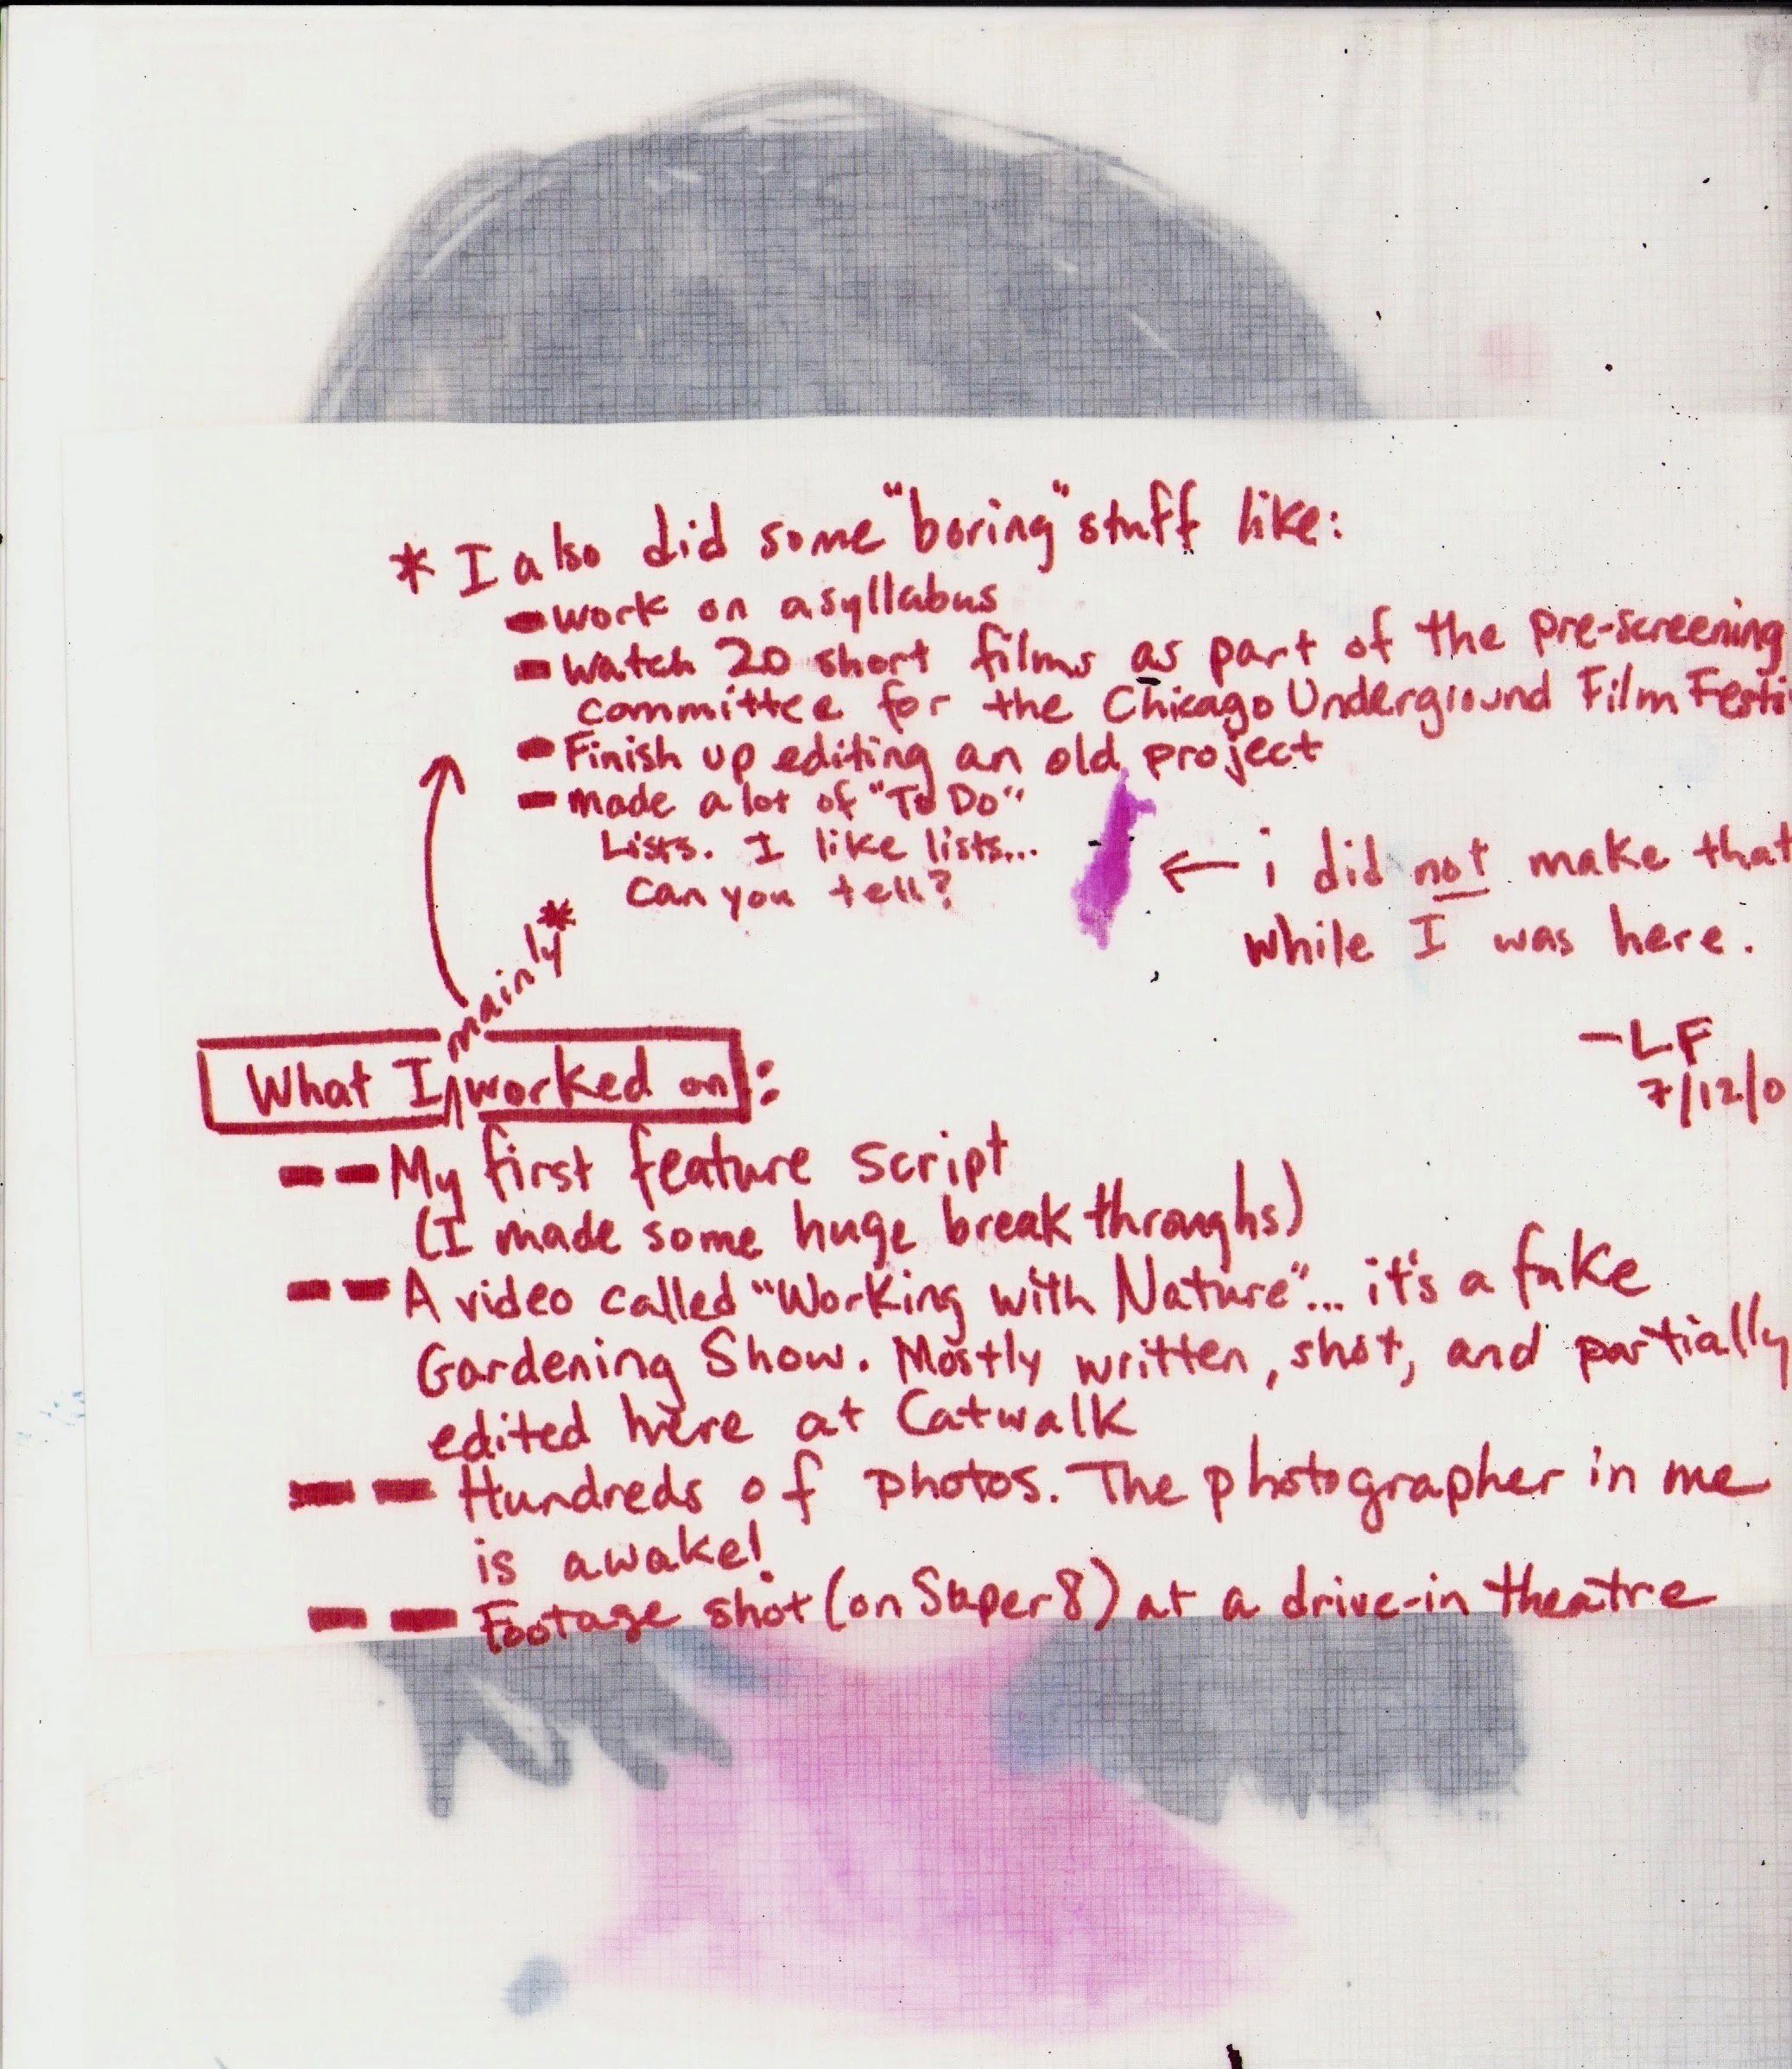 * I also did some "boring" stuff like:
- work on a syllabus
- watch 20 short films as part of the pre-screening
committee for the Chicago Underground Film Festi
- Finish up editing an old project
- made a lot of "To Do"
Lists. I like lists...
Can you tell?
← i did not make that
while I was here.
-LF
7/12/0
mainly*
What I ∧ worked on:
-- My first feature script
(I made some huge break throughs)
-- A video called "Working with Nature"... it's a fake
Gardening Show. Mostly written, shot, and partially
edited here at Catwalk
-- Hundreds of photos. The photographer in me
is awake!
-- Footage shot (on Super 8) at a drive-in theatre